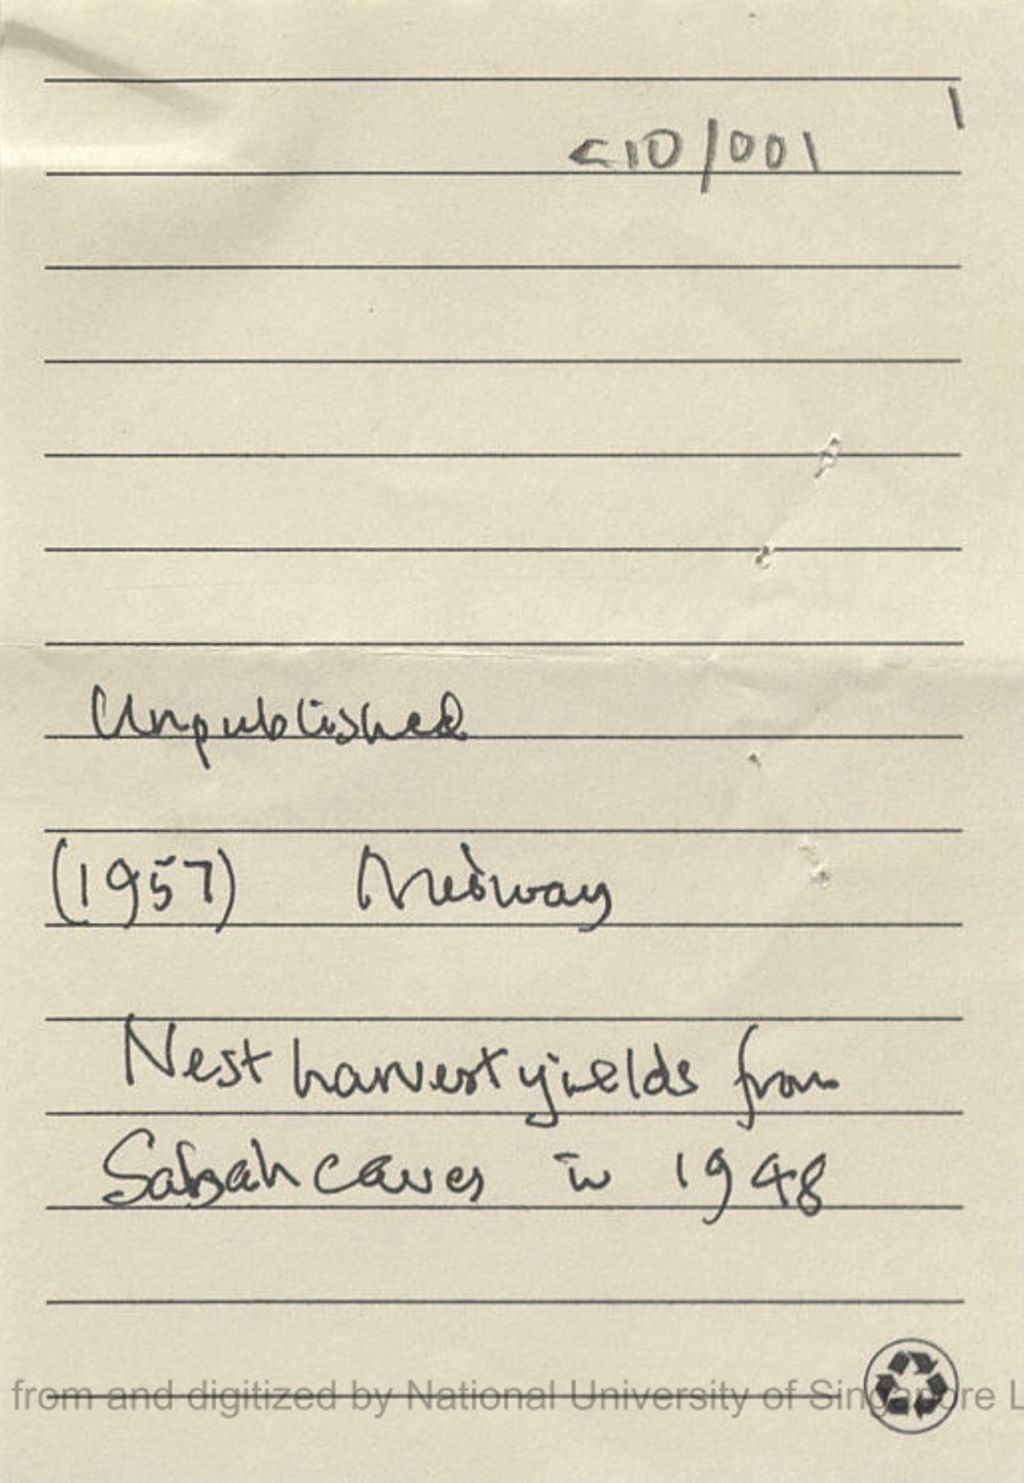 1
C10/001
Unpublished
(1957) Medway
Nest harvest yields from
Sabah caves in 1948
from and digitized by National University of Singapore L